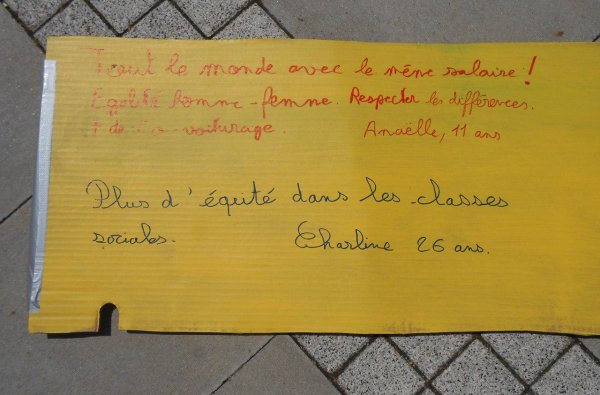 Tout le monde avec le même salaire !
Egalité homme-femme. Respecter les différences.
+ de co-voiturage. Anaëlle, 11 ans
Plus d'équité dans les classes
sociales. Charline 26 ans.